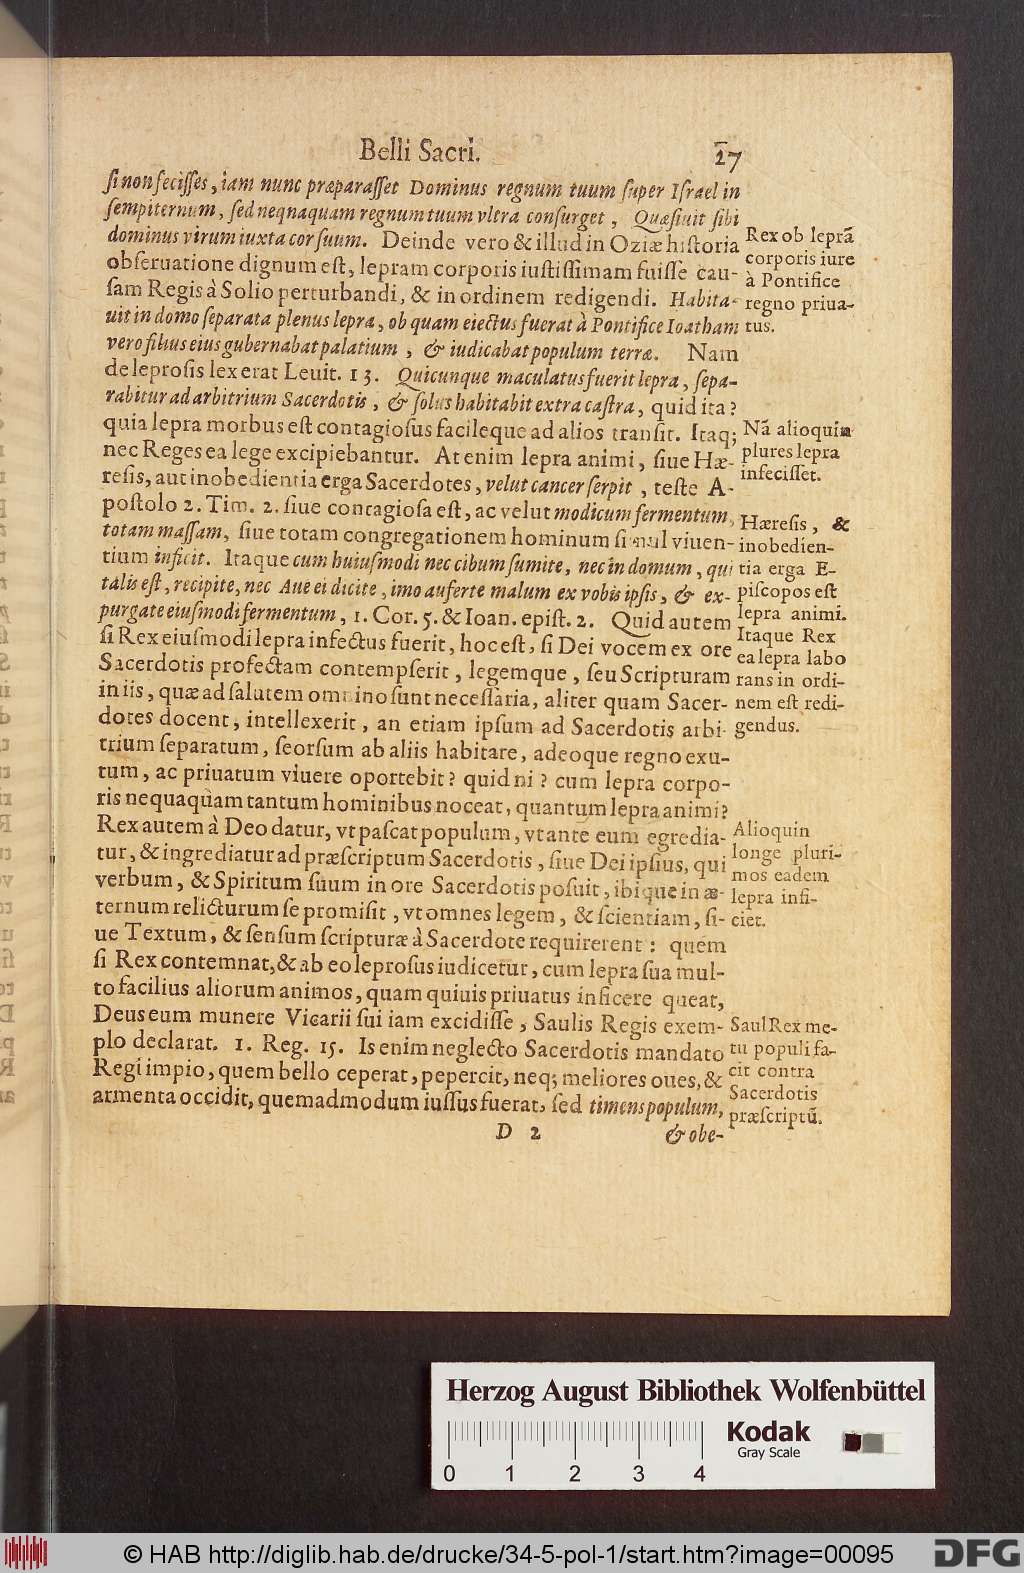 Belli Sacri. 27
ſi non feciſſes, iam nunc præparaſſet Dominus regnum tuum ſuper Iſrael in
ſempiternum, ſed neqnaquam regnum tuum vltra conſurget, Quæſiuit ſibi
dominus virum iuxta cor ſuum. Deinde vero & illud in Oziæ hiſtoria
obſeruatione dignum eſt, lepram corporis iuſtiſſimam fuiſſe cau-
ſam Regis à Solio perturbandi, & in ordinem redigendi. Habita-
uit in domo ſeparata plenus lepra, ob quam eiectus fuerat à Pontifice Ioatham
vero filius eius gubernabat palatium, & iudicabat populum terræ. Nam
de leproſis lex erat Leuit. 13. Quicunque maculatus fuerit lepra, ſepa-
rabitur ad arbitrium Sacerdotis, & ſolus habitabit extra caſtra, quid ita?
quia lepra morbus eſt contagioſus facileque ad alios tranſit. Itaq;
nec Reges ea lege excipiebantur. At enim lepra animi, ſiue Hæ-
reſis, aut inobedientia erga Sacerdotes, velut cancer ſerpit, teſte A-
poſtolo 2. Tim. 2. ſiue contagioſa eſt, ac velut modicum fermentum,
totam maſſam, ſiue totam congregationem hominum ſimul viuen-
tium inficit. Itaque cum huiuſmodi nec cibum ſumite, nec in domum, qui
talis eſt, recipite, nec Aue ei dicite, imo auferte malum ex vobis ipſis, & ex-
purgate eiuſmodi fermentum, 1. Cor. 5. & Ioan. epiſt. 2. Quid autem
ſi Rex eiuſmodi lepra infectus fuerit, hoc eſt, ſi Dei vocem ex ore
Sacerdotis profectam contempſerit, legemque, ſeu Scripturam
in iis, quæ ad ſalutem omnino ſunt neceſſaria, aliter quam Sacer-
dotes docent, intellexerit, an etiam ipſum ad Sacerdotis arbi-
trium ſeparatum, ſeorſum ab aliis habitare, adeoque regno exu-
tum, ac priuatum viuere oportebit? quid ni? cum lepra corpo-
ris nequaquam tantum hominibus noceat, quantum lepra animi?
Rex autem à Deo datur, vt paſcat populum, vt ante eum egredia-
tur, & ingrediatur ad præſcriptum Sacerdotis, ſiue Dei ipſius, qui
verbum, & Spiritum ſuum in ore Sacerdotis poſuit, ibique in æ-
ternum relicturum ſe promiſit, vt omnes legem, & ſcientiam, ſi-
ue Textum, & ſenſum ſcripturæ à Sacerdote requirerent: quem
ſi Rex contemnat, & ab eo leproſus iudicetur, cum lepra ſua mul-
to facilius aliorum animos, quam quiuis priuatus inficere queat,
Deus eum munere Vicarii ſui iam excidiſſe, Saulis Regis exem-
plo declarat. 1. Reg. 15. Is enim neglecto Sacerdotis mandato
Regi impio, quem bello ceperat, pepercit, neq; meliores oues, &
armenta occidit, quemadmodum iuſſus fuerat, ſed timens populum,
D 2 & obe-
Rex ob leprā
corporis iure
à Pontifice
regno priua-
tus.
Nā alioquin
plures lepra
infeciſſet.
Hæreſis, &
inobedien-
tia erga E-
piſcopos eſt
lepra animi.
Itaque Rex
ea lepra labo
rans in ordi-
nem eſt redi-
gendus.
Alioquin
longe pluri-
mos eadem
lepra infi-
ciet.
Saul Rex me-
tu populi fa-
cit contra
Sacerdotis
præſcriptū.
Herzog August Bibliothek Wolfenbüttel
Kodak
Gray Scale
0 1 2 3 4
© HAB http://diglib.hab.de/drucke/34-5-pol-1/start.htm?image=00095
DFG